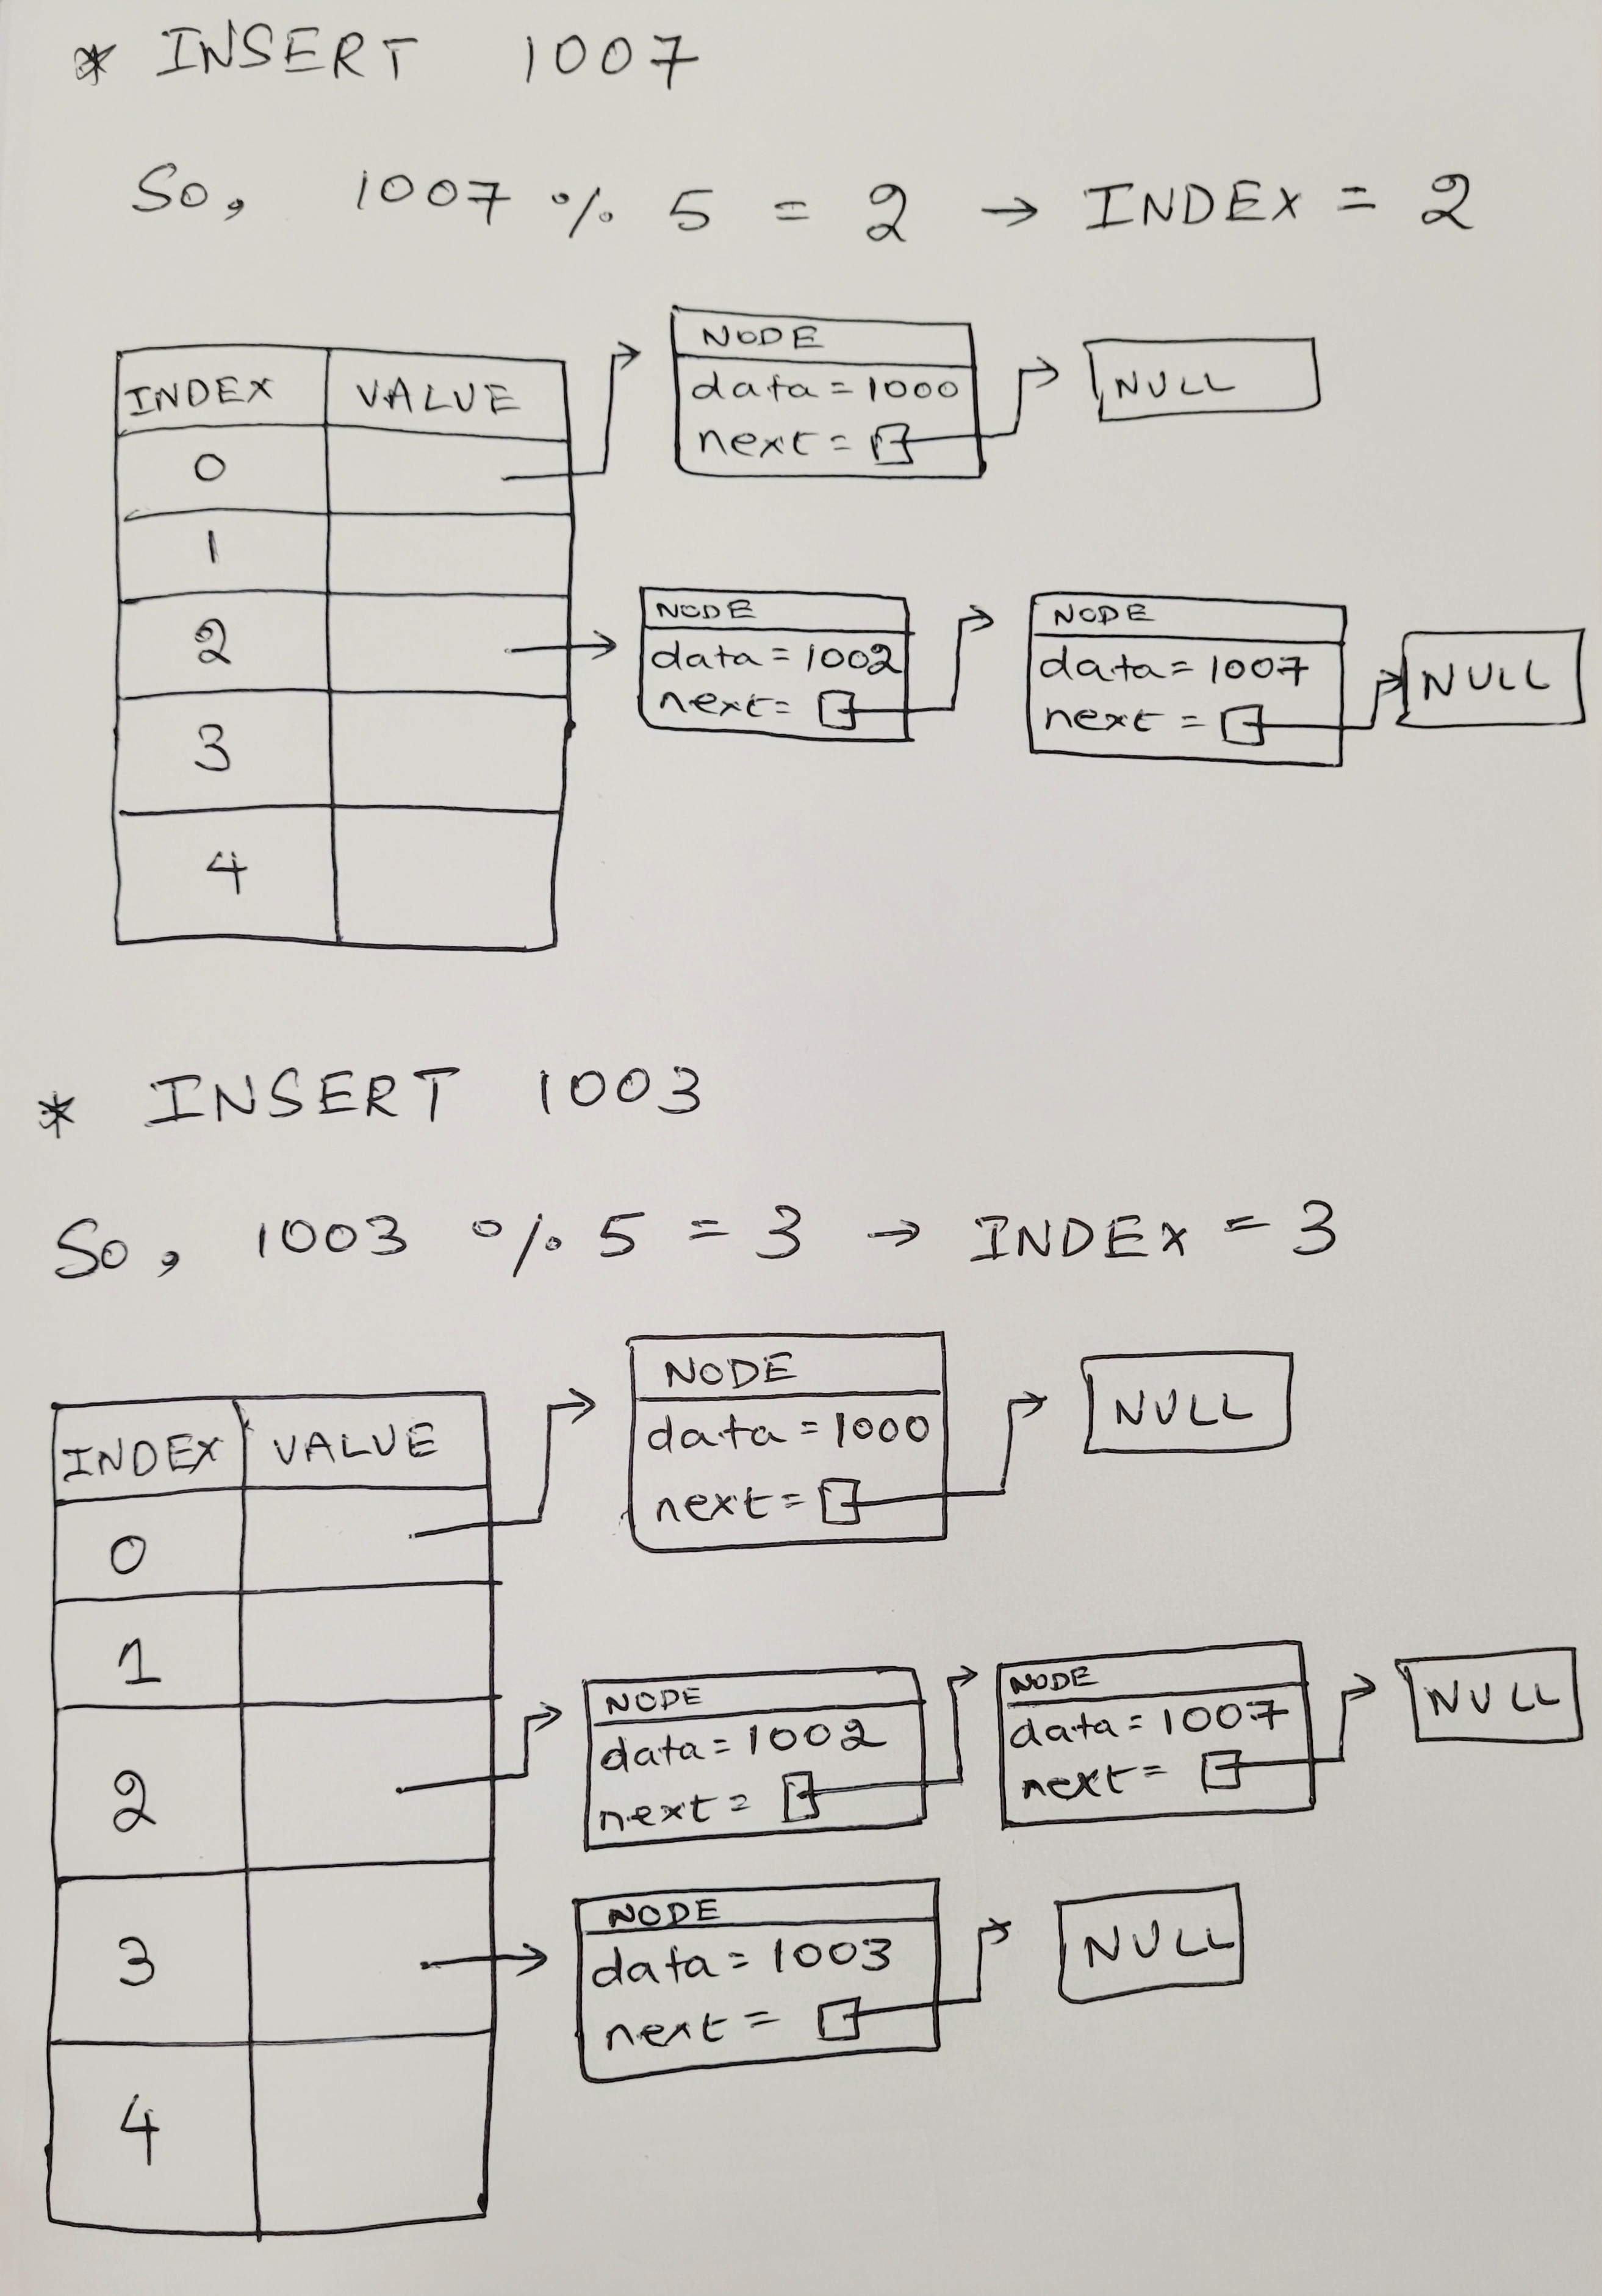 * INSERT 1007
So, 1007 % 5 = 2 → INDEX = 2
INDEX VALUE
0
1
2
3
4
NODE
data = 1000
next =
NULL
NODE
data = 1002
next =
NODE
data = 1007
next =
NULL
* INSERT 1003
So, 1003 % 5 = 3 → INDEX = 3
INDEX VALUE
0
1
2
3
4
NODE
data = 1000
next =
NULL
NODE
data = 1002
next =
NODE
data = 1007
next =
NULL
NODE
data = 1003
next =
NULL